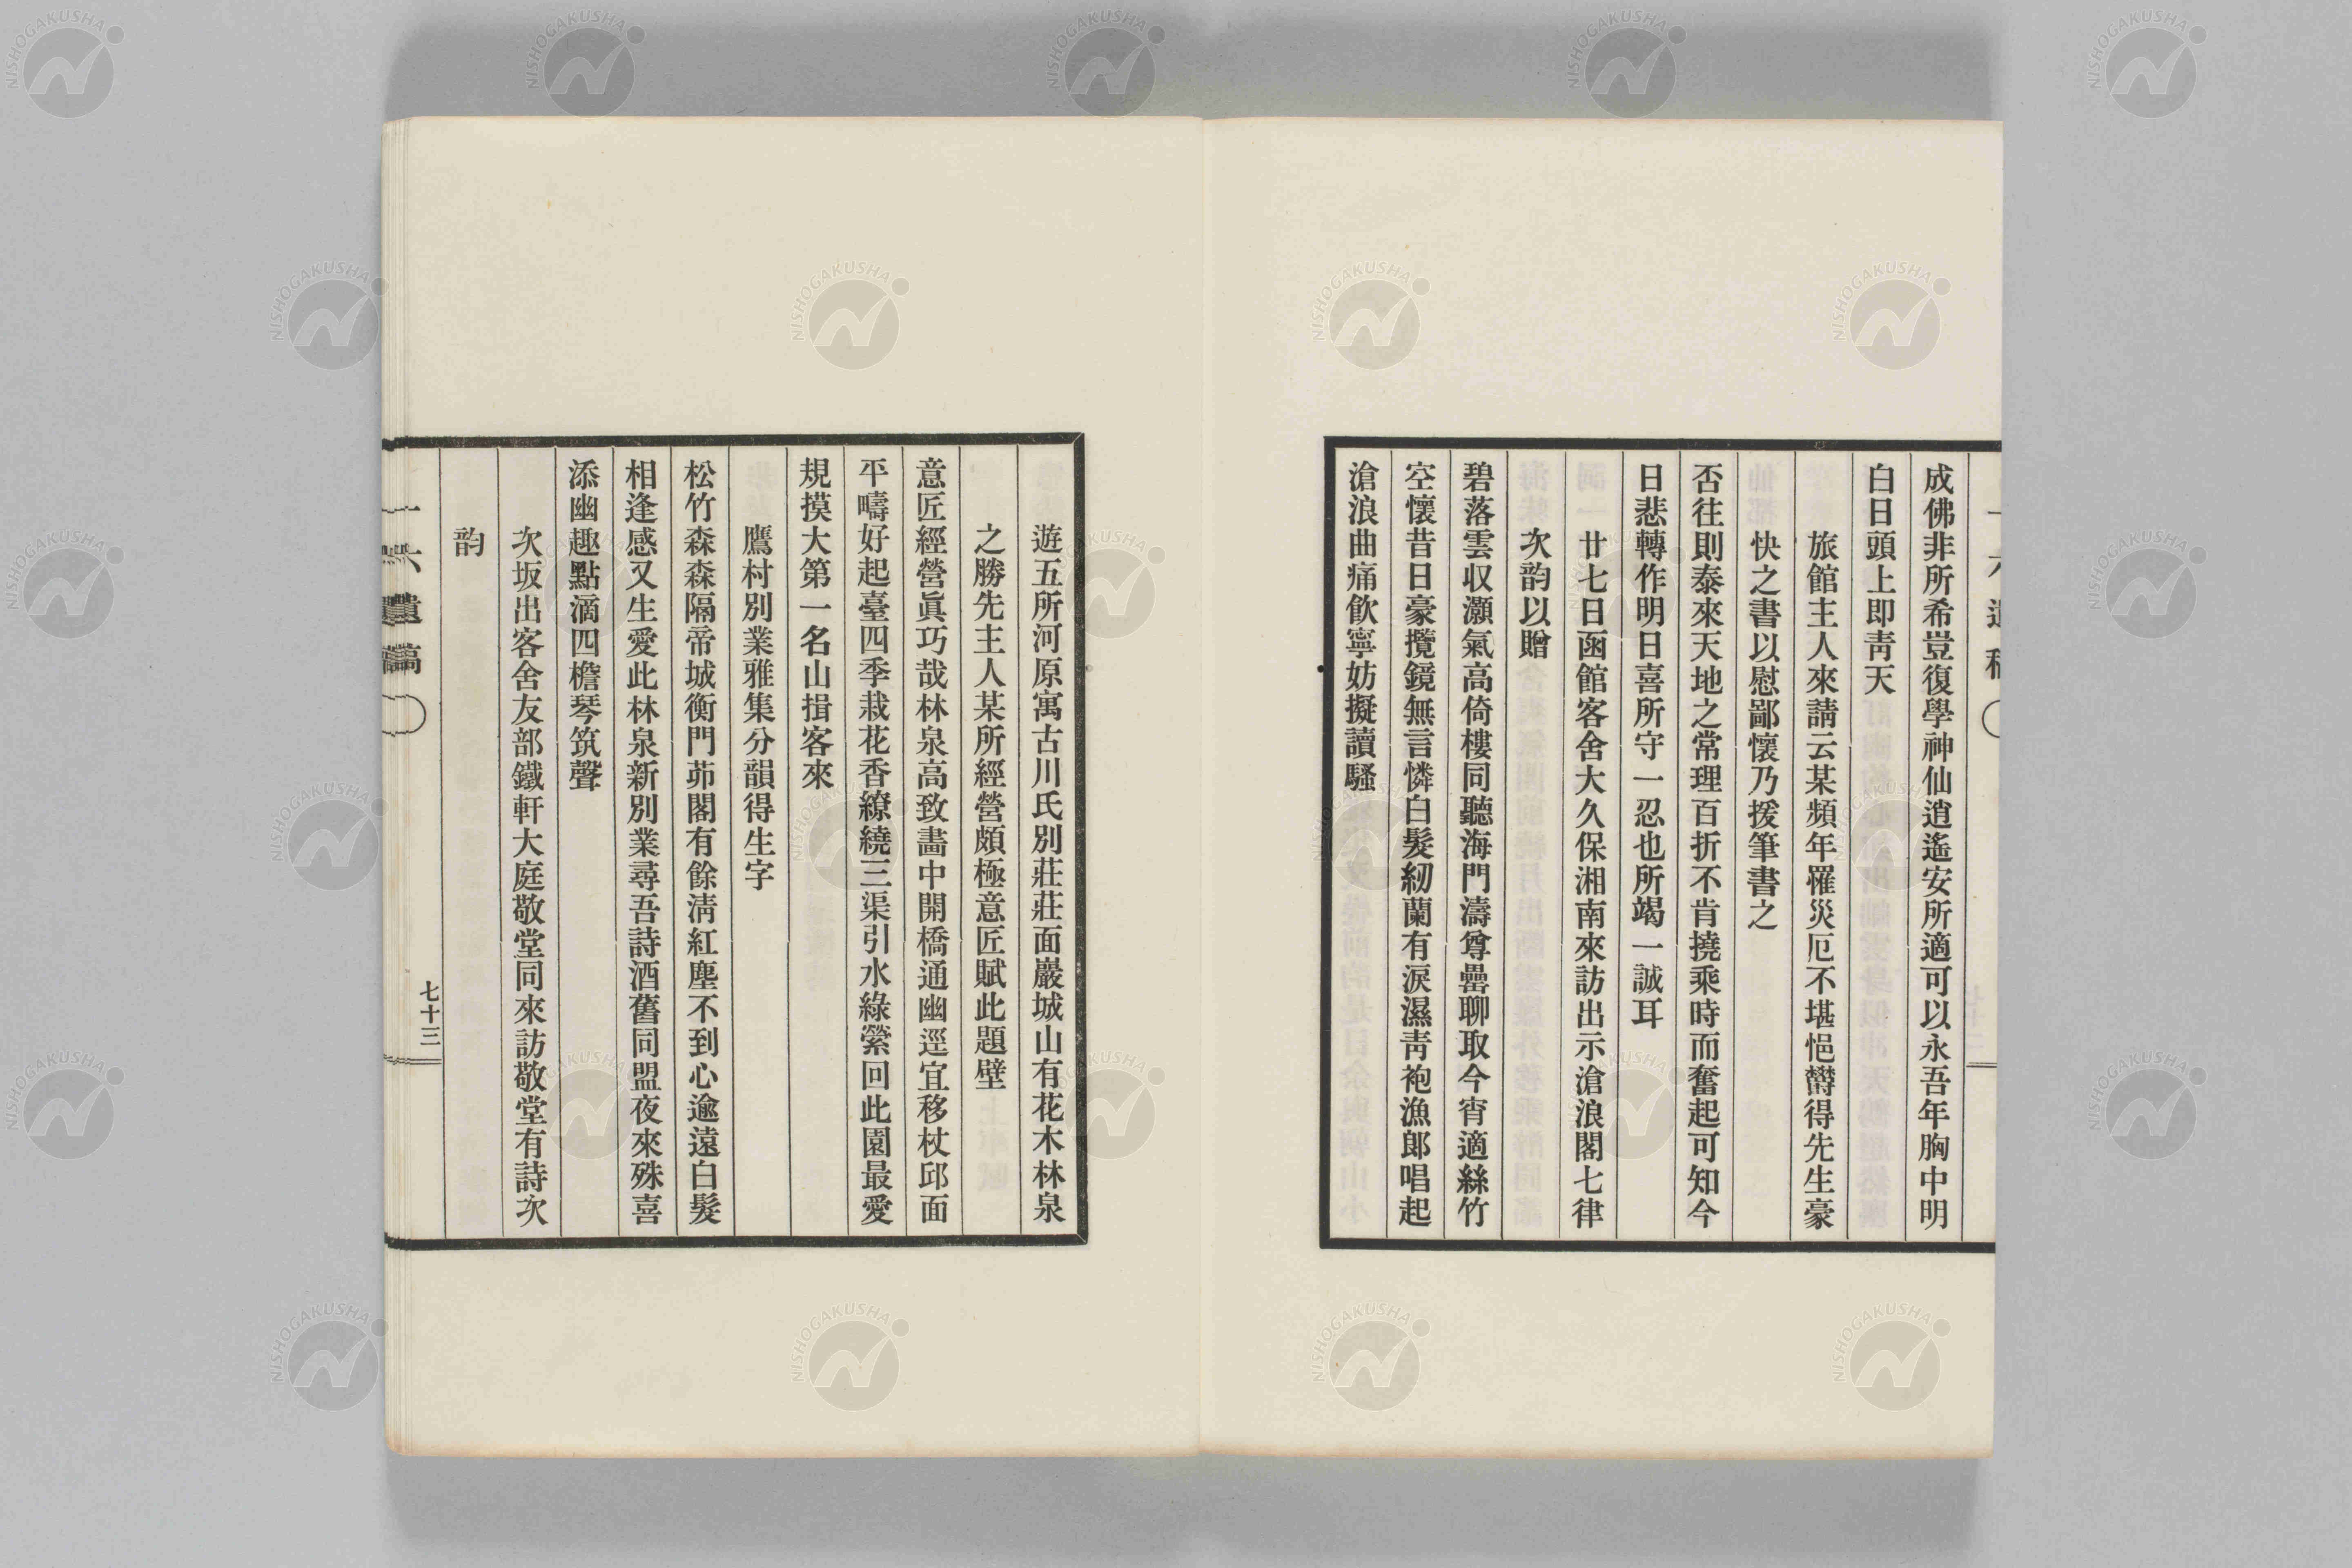 成佛非所希豈復學神仙逍遙安所適可以永吾年胸中明
白日頭上即靑天
旅館主人來請云某頻年罹災厄不堪悒欝得先生豪
快之書以慰鄙懷乃援筆書之
否往則泰來天地之常理百折不肯撓乘時而奮起可知今
日悲轉作明日喜所守一忍也所竭一誠耳
廿七日函館客舍大久保湘南來訪出示滄浪閣七律
次韵以贈
碧落雲収灝氣高倚樓同聽海門濤尊罍聊取今宵適絲竹
空懷昔日豪攬鏡無言憐白髮紉蘭有淚濕靑袍漁郞唱起
滄浪曲痛飮寧妨擬讀騷
遊五所河原寓古川氏別莊莊面巖城山有花木林泉
之勝先主人某所經營頗極意匠賦此題壁
意匠經營眞巧哉林泉高致畵中開橋通幽逕宜移杖邱面
平疇好起臺四季栽花香繚繞三渠引水綠縈回此園最愛
規摸大第一名山揖客來
鷹村別業雅集分韻得生字
松竹森森隔帝城衡門茆閣有餘淸紅塵不到心逾遠白髮
相逢感又生愛此林泉新別業尋吾詩酒舊同盟夜來殊喜
添幽趣點滴四檐琴筑聲
次坂出客舍友部鐵軒大庭敬堂同來訪敬堂有詩次
韵
一六遺稿
七十三
NISHOGAKUSHA